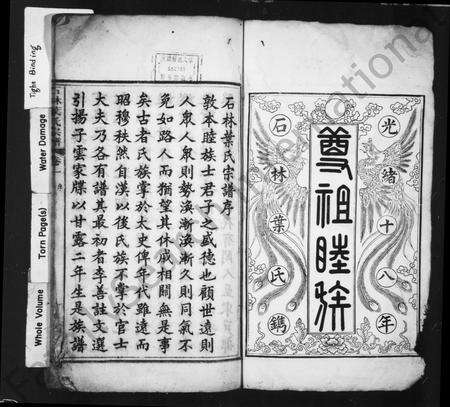 光緒十八年
尊祖睦族
石林葉氏鐫
石林葉氏宗譜序
敦本睦族士君子之盛德也顧世遠則
人眾人眾則勢渙漸渙漸久則同氣不
免如路人而猶望其休戚相關無是事
矣古者氏族掌於太史俾年代雖遠而
昭穆秩然自漢以後氏族不掌於官士
大夫乃各有譜其最初者李善註文選
引揚子雲家牒以甘露二年生是族譜
Tight Binding
Water Damage
Torn Page(s)
Whole Volume